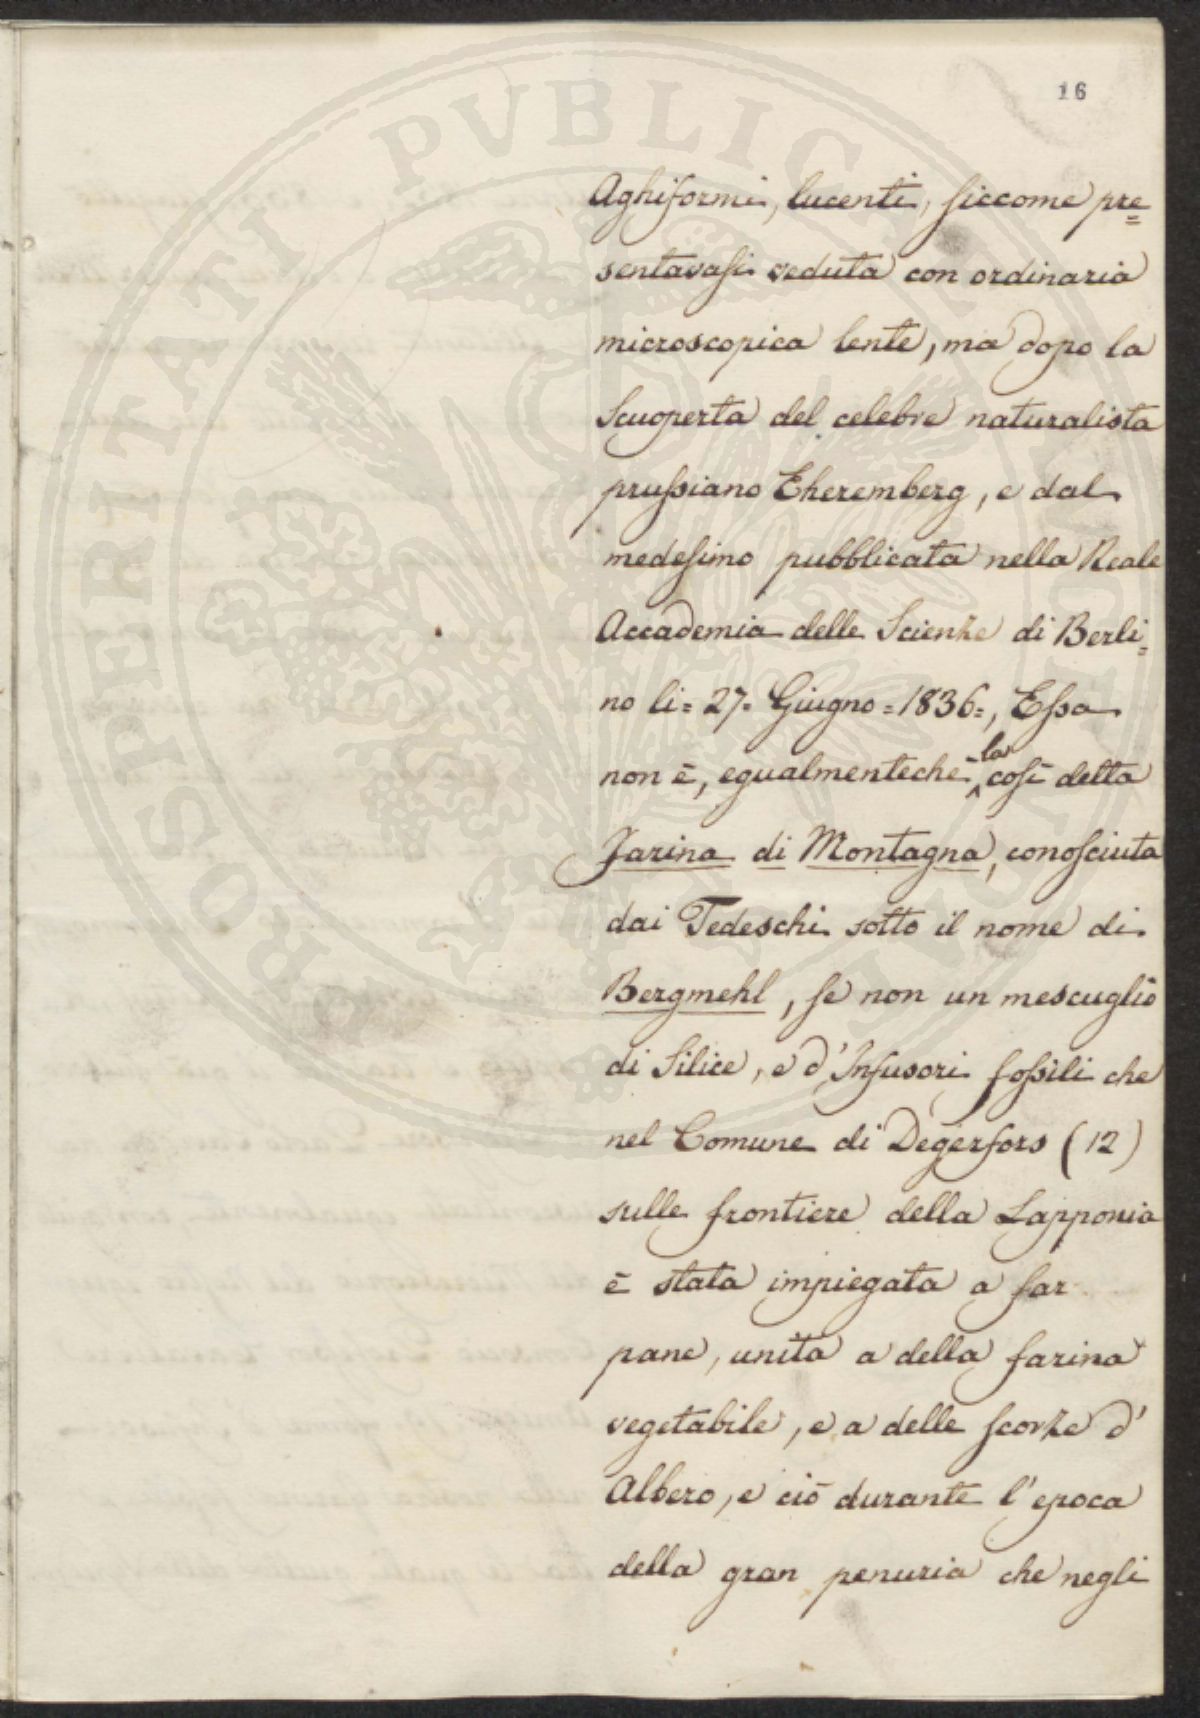 16
Aghiformi, lucenti, siccome pre=
sentavasi veduta con ordinaria
microscopica lente, ma dopo la
Scuoperta del celebre naturalista
prussiano Eheremberg, e dal
medesimo pubblicata nella Reale
Accademia delle Scienze di Berli=
no li= 27= Giugno=1836=, Essa
non è, egualmenteche la così detta
Farina di Montagna, conosciuta
dai Tedeschi sotto il nome di
Bergmehl, se non un mescuglio
di Silice, e d'Infusori fossili che
nel Comune di Degerfors (12)
sulle frontiere della Lapponia
è stata impiegata a far
pane, unita a della farina
vegetabile, e a delle scorze d'
Albero, e ciò durante l'epoca
della gran penuria che negli
PROSPERITATI PVBLICAE